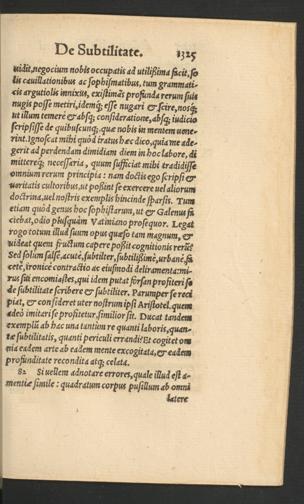 De Subtilitate. 1325
uidit, negocium nobis occupatis ad utilißima facit, so
lis cauillationibus ac sophismatibus, tum grammati-
cis argutiolis innixus, existimās profunda rerum suis
nugis posse metiri, idemq́; esse nugari & scire, nosq́;
ut illum temerè & absq; consideratione, absq; iudicio
scripsisse de quibuscunq; quæ nobis in mentem uene-
rint. Ignoscat mihi quòd iratus hæc dico, quia me ade-
gerit ad perdendam dimidiam diem in hoc labore, di
mittereq́; necessaria, quum sufficiat mihi tradidisse
omnium rerum principia: nam doctis ego scripsi &
ueritatis cultoribus, ut poßint se exercere uel aliorum
doctrina, uel nostris exemplis hincinde sparsis. Tum
etiam quòd genus hoc sophistarum, ut & Galenus fa
ciebat, odio plusquàm Vatiniano prosequor. Legat
rogo totum illud suum opus quæso tam magnum, &
uideat quem fructum capere poßit cognitionis rerū:
Sed solùm salsè, acutè, subtiliter, subtilißimè, urbanè, fa
cetè, ironicè contractio ac eiusmodi deliramenta: mi-
rus sui encomiastes, qui idem putat forsan profiteri se
de subtilitate scribere & subtiliter. Parumper se reci
piat, & consideret uter nostrum ipsi Aristoteli, quem
adeò imitari se profitetur, similior sit. Ducat tandem
exemplū ab hac una tantùm re quanti laboris, quan-
tæ subtilitatis, quanti periculi errandi: Et cogitet om
nia eadem arte ab eadem mente excogitata, & eadem
profunditate recondita atq; celata.
82 Si uellem adnotare errores, quale illud est a-
mentiæ simile: quadratum corpus pusillum ab omni
latere